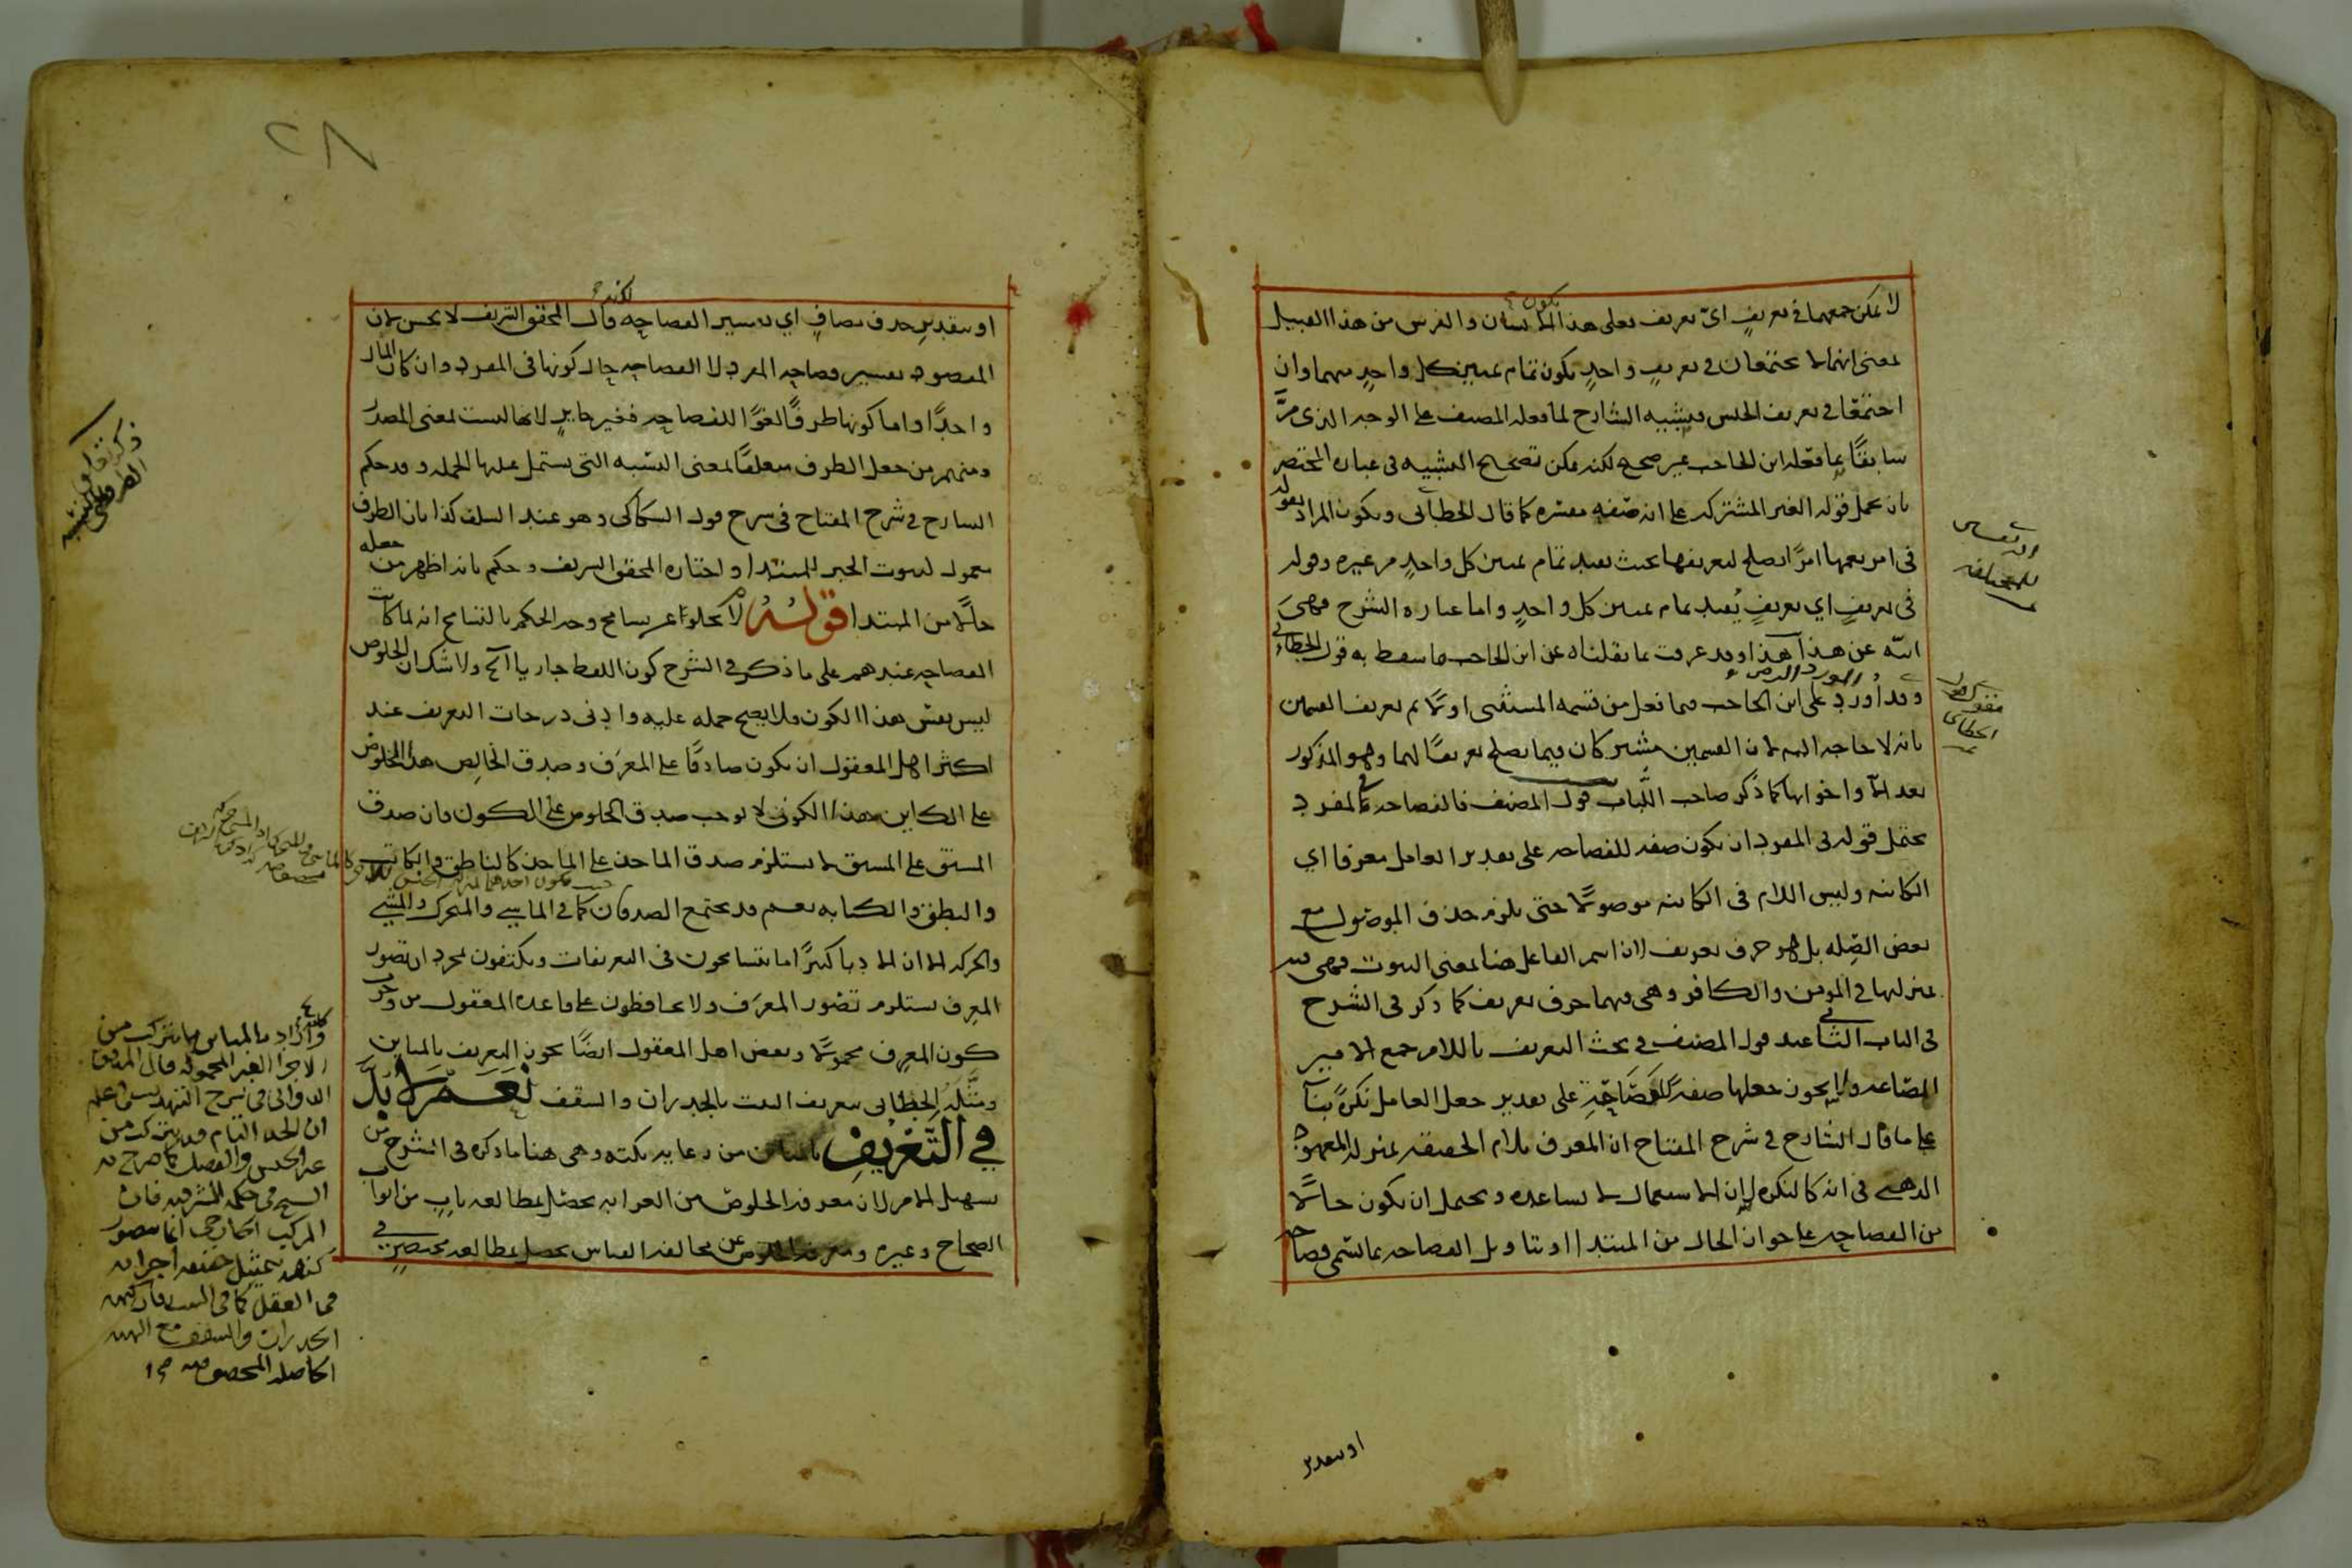 لا يمكن جمعهما في تعريف اىّ تعريف فعلى هذا الانسان والفرس من هذا القبيل
بمعنى انهما لا يجتمعان في تعريف واحد يكون تمام تمييز كل واحد منهما وان
اجتمعا في تعريف الجنس فتشبيه الشارح لما فعله المصنف على الوجه الذى مرّ
سابقًا بما فعله ابن الحاجب غير صحيح لكنه يمكن تصحيح التشبيه في عباره المختصر
بان يحمل قوله الغير المشتركه على انه صفه مفسره كما قال الخطابى ويكون المراد بقوله
فى امر يعمهما امرًا يصلح لتعريفهما بحيث يفيد تمام تمييز كل واحد من غيره وقوله
فى تعريف اي تعريف يُفيد تمام تمييز كل واحد واما عباره الشرح فهى
ابيّه عن هذا هذا وقد عرفت بما نقلناه عن ابن الحاجب ما سقط به قول الخطابي
وقد اورد على ابن الحاجب فيما فعل من قسمه المستثنى اولًا ثم تعريف القسمين
بانه لا حاجه اليه لان القسمين مشتركان فيما يصلح تعريفًا لهما وهو المذكور
بعد الا واخواتها كما ذكر صاحب اللُّباب قول المصنف فالفصاحه في المفرد
يحتمل قوله فى المفرد ان يكون صفه للفصاحه على تقدير العامل معرفا اي
الكائنه وليس اللام فى الكائنه موصولًا حتى يلزم حذف الموصول مع
بعض الصّله بل هو حرف تعريف لان اسم الفاعل هنا بمعنى الثبوت فهى فيه
بمنزلتها في المومن والكافر وهى فيهما حرف تعريف كما ذكر فى الشرح
فى الباب الثانى عند قول المصنف في بحث التعريف باللام جمع الامير
الصّاغه ولا يجوز جعلها صفةً للفَصَاحَةِ على تقدير جعل العامل نكرةً بناءً
على ما قال الشارح في شرح المفتاح ان المعرف بلام الحقيقه بمنزله المعهود
الذهنى فى انه كالنكره لان الاستعمال لا يساعده ويحتمل ان يكون حالًا
من الفصاحه على جواز الحال من المبتدا او بتاويل الفصاحه بما تسمى فصاحه
او بتقدير
او بتقدير حذف مضاف اي تفسير الفصاحه وقال المحقق الشريف لا يحسن لان
المقصود تفسير فصاحه المفرد لا الفصاحه حال كونها فى المفرد وان كان المال
واحدًا واما كونها ظرفًا لغوًا للفصاحه فغير جايز لانها ليست بمعنى المصدر
ومنهم من جعل الظرف متعلقًا بمعنى النسبه التى يشتمل عليها الجمله وقد حكم
الشارح في شرح المفتاح فى شرح قول السكاكى وهو عند السلف كذا بان الظرف
معمول لثبوت الخبر للمبتدا واختاره المحقق الشريف وحكم بانه اظهر من جعله
حالًا من المبتدا قولـهُ لا يخلو عن تسامح وجه الحكم بالتسامح انه لما كانت
الفصاحه عندهم على ما ذكر في الشرح كون اللفظ جاريا الخ ولا شك ان الخلوص
ليس نفس هذا الكون فلا يصح حمله عليه وادنى درجات التعريف عند
اكثر اهل المعقول ان يكون صادقًا على المعرَف وصدق الخالِص هذا الخلوص
على الكاين هذا الكون لا يوجب صدق الخلوص على الكون فان صدق
المشتق على المشتق لا يستلزم صدق الماخذ على الماخذ كالناطق والكاتب
والنطق والكتابه نعم قد يجتمع الصدقان كما في الماشي والمتحرك والمشي
والحركه الا ان الادباء كثيرًا ما يتسامحون فى التعريفات ويكتفون بمجرد ان تصور
المعرِف يستلزم تصور المعرَف ولا يحافظون على قاعده المعقول من وجوب
كون المعرِف محمولًا وبعض اهل المعقول ايضًا يجوز التعريف بالمباين
ومثّله الخطابى بتعريف البيت بالجدران والسقف نَعَم لابُدَّ
في التَّعْرِيفِ بالمباين من رعايه نكته وهى هنا ما ذكره فى الشرح من
تسهيل الامر لان معرفه الخلوص من الغرابه تحصل بمطالعه باب من ابواب
الصحاح وغيره ومعرفه الخلوص عن مخالفه القياس تحصل بمطالعه مختصر في
واراد بالمباين ما يتركب من
الاجزا الغير المحموله قال المدقق
الدوانى فى شرح التهذيب اعلم
ان الحد التام قد يتركب من
غير الجنس والفصل كما صرح به
الشيخ في الحكمه المشرقيه فان
المركب الخارجى انما يتصور
كنهه بتمثيل حقيقه اجزائه
فى العقل كما فى البيت فانه
الجدران والسقف مع الهيئه
الحاصله المخصوصه